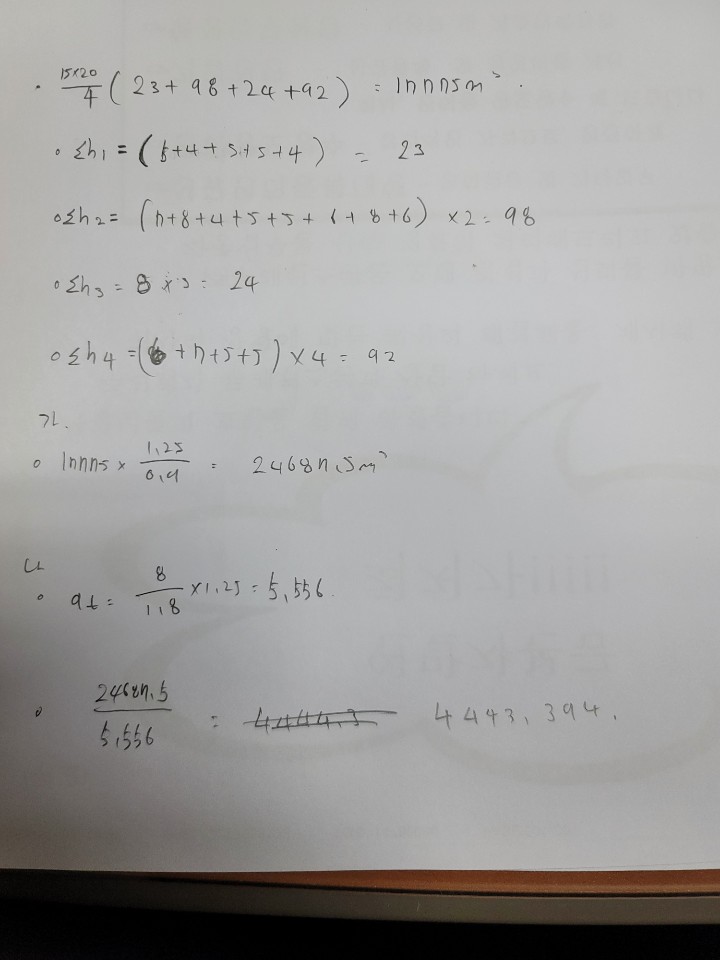 · 15×20/4 ( 23+98+24+92 ) = 17775m³.
∘ Σh₁ = (5+4+5+5+4) = 23
∘ Σh₂ = (7+8+4+5+5+6+8+6) ×2= 98
∘ Σh₃ = 8 ×3 = 24
∘ Σh₄ = (6+7+5+5) ×4 = 92
가.
∘ 17775 × 1.25/0.9 = 24687.5m³
나
∘ qt = 8/1.8 ×1.25 = 5.556.
∘ 24687.5/5.556 = 4443.394.